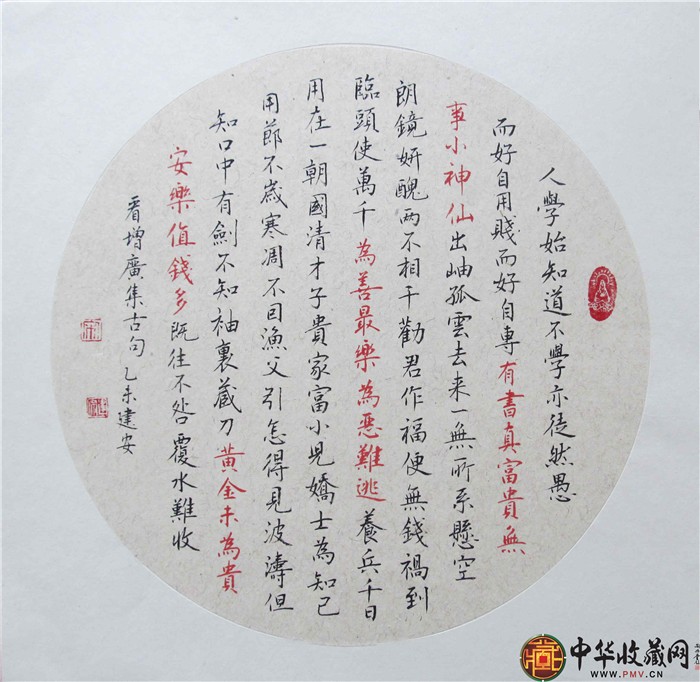 人學始知道不學亦徒然愚
而好自用賤而好自專有書真富貴無
事小神仙出岫孤雲去来一無所系懸空
朗鏡妍醜两不相干勸君作福便無錢禍到
臨頭使萬千為善最樂為惡難逃養兵千日
用在一朝國清才子貴家富小兒嬌士為知己
用節不歲寒凋不因漁父引怎得見波濤但
知口中有劍不知袖裏藏刀黃金未為貴
安樂值錢多既往不咎覆水難收
看增廣集古句乙未建安
中华收藏网
WWW.PMV.CN